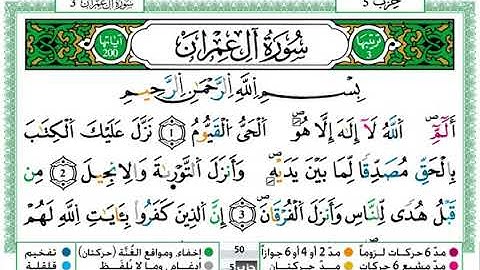 سورة آل عمران 3
حزب 5
ترتيبها 3
سُورَةُ آلِ عِمْرَانَ
آياتها 200
بِسْمِ اللَّهِ الرَّحْمَٰنِ الرَّحِيمِ
الٓمٓ اللَّهُ لَا إِلَٰهَ إِلَّا هُوَ الْحَيُّ الْقَيُّومُ ١ نَزَّلَ عَلَيْكَ الْكِتَابَ
بِالْحَقِّ مُصَدِّقًا لِّمَا بَيْنَ يَدَيْهِ وَأَنزَلَ التَّوْرَاةَ وَالْإِنجِيلَ ٢ مِن
قَبْلُ هُدًى لِّلنَّاسِ وَأَنزَلَ الْفُرْقَانَ ٣ إِنَّ الَّذِينَ كَفَرُوا بِآيَاتِ اللَّهِ لَهُمْ
مدّ 6 حركات لزوماً مدّ 2 أو 4 أو 6 جوازاً 50 إخفاء، ومواقع الغُنَّة (حركتان) تفخيم
مدّ حركتان إدغام، وما لا يُلفَظ قلقلة